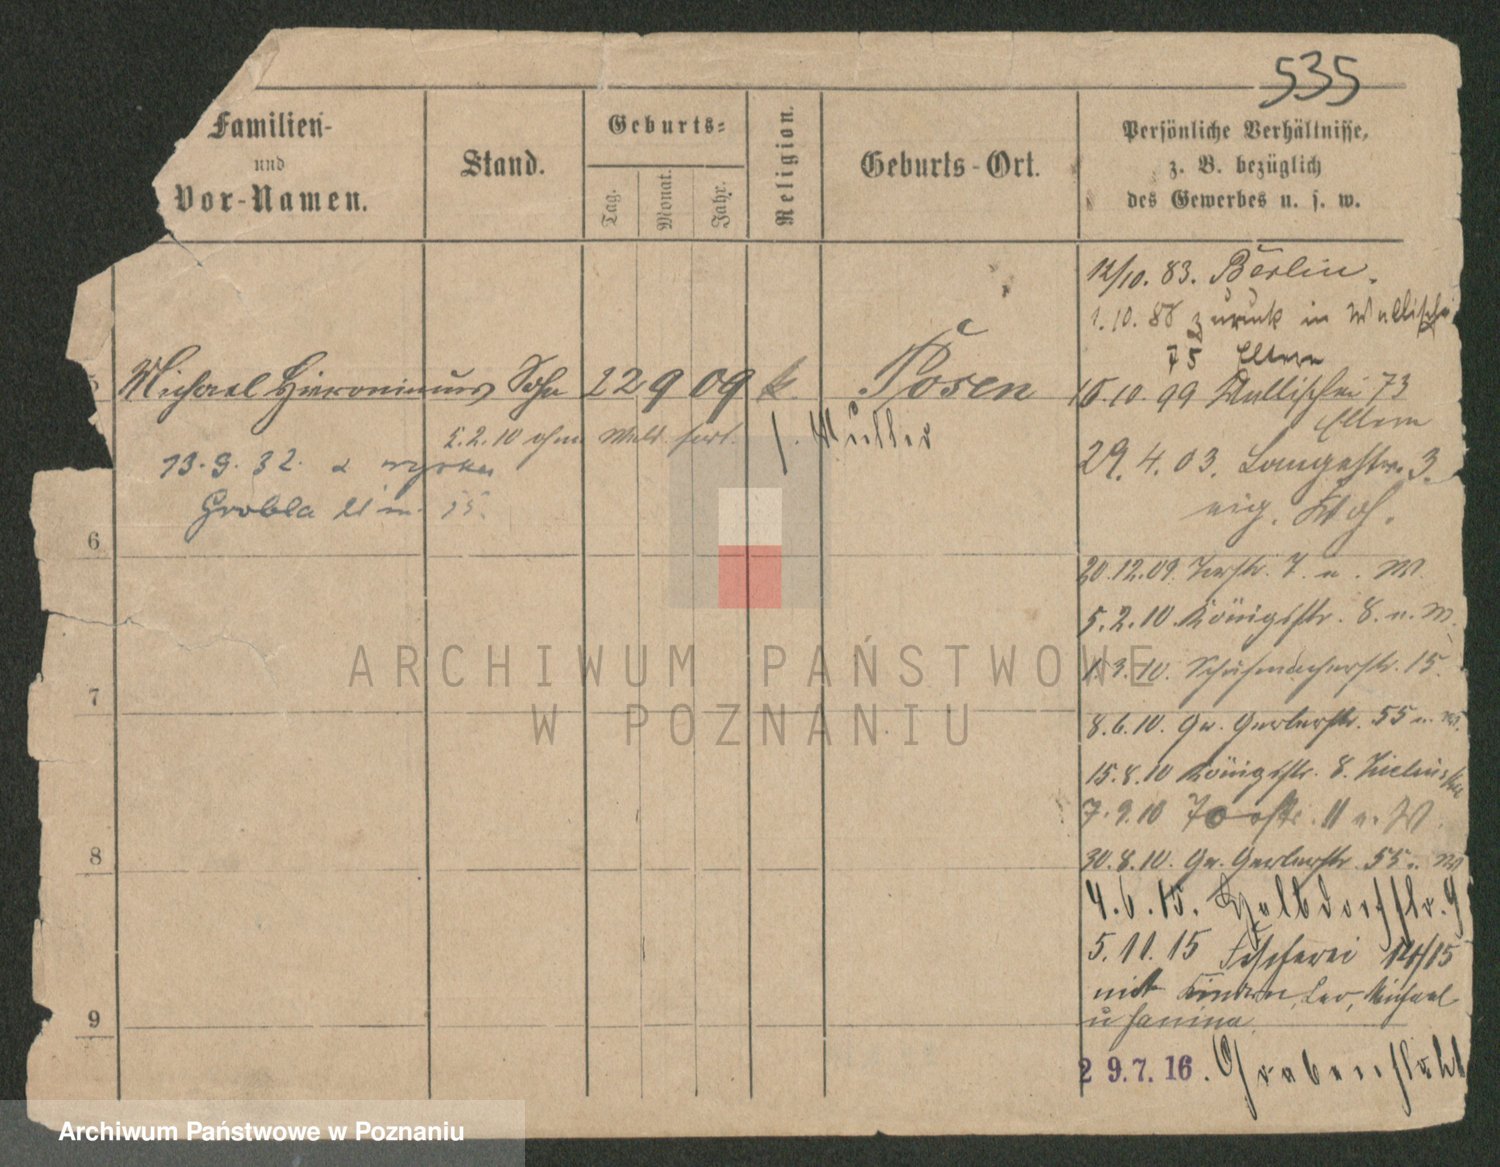 535
Familien-
und
Vor-Namen.
Stand.
Geburts-
Tag.
Monat.
Jahr.
Religion.
Geburts-Ort.
Persönliche Verhältnisse,
z. B. bezüglich
des Gewerbes u. s. w.
12/10. 83. Berlin.
1.10.88 zurück in Wallischei
75 Eltern
5 Michael Hieronimus Sohn 22 9 09 k. Posen
15.10.99 Wallischei 73
Eltern
5.2.10 ohne Meld. fort. f. Mutter
29.4.03. Langestr. 3.
eig. Woh.
13.9.32.
Grobla 11 m. 15.
6
20.12.09. 7. u. M.
5.2.10 Königsstr. 8. u. M.
1.3.10. Schuhmacherstr. 15.
7
8.6.10. Gr. Gerberstr. 55 u. M.
15.8.10 Königsstr. 8.
7.9.10 11 u. W.
8
30.8.10. Gr. Gerberstr. 55 u. M
4.6.15. Halbdorfstr. 9
5.11.15 Fischerei
mit Kindern, Leo, Michael
u Janina.
9
29.7.16.
ARCHIWUM PAŃSTWOWE
W POZNANIU
Archiwum Państwowe w Poznaniu